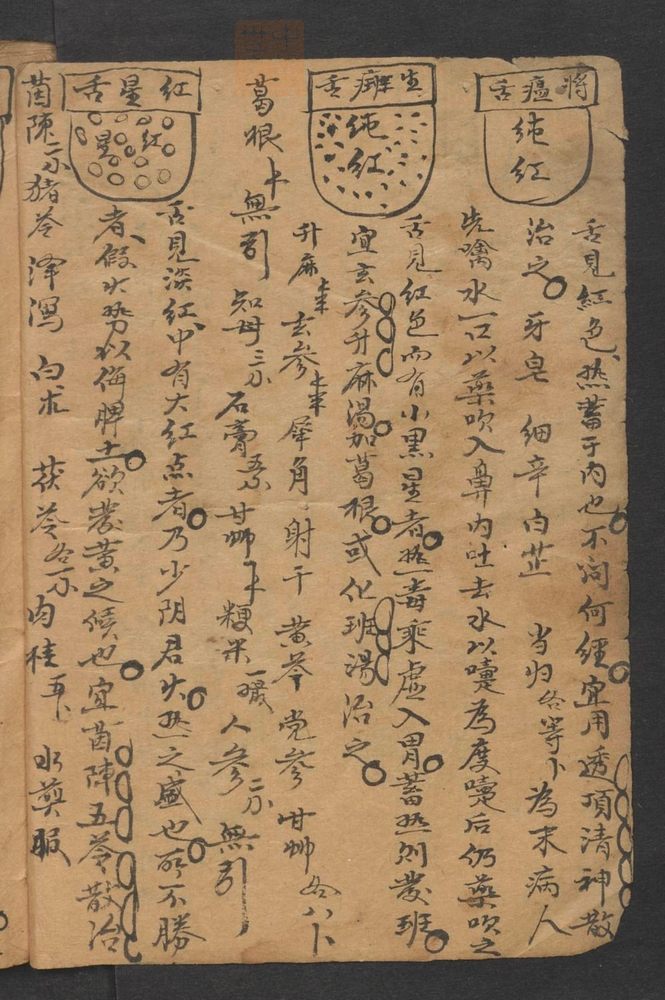 将瘟舌
纯红
舌見紅色热蓄于内也不问何經宜用透頂清神散
治之 牙皂 细辛 白芷 当归各等卜為末病人
先噙水一口以藥吹入鼻内吐去水以嚏為度嚏后仍藥吹之
生癍舌
纯红
舌見红色而有小黑星者热毒乘虚入胃蓄热则發班
宜玄参升麻湯加葛根或化班湯治之
升麻 玄参 犀角 射干 黄芩 党参 甘艸各八卜
葛根 無引 知母三分 石膏 甘艸 粳米一撮 人参二分 無引
红星舌
红星
舌見淡红中有大红点者乃少阴君火热之盛也所不勝
者假火势以侮脾土欲發黄之候也宜茵陳五苓散治
茵陳二分 猪苓 泽瀉 白朮 茯苓各一分 肉桂五卜 水煎服